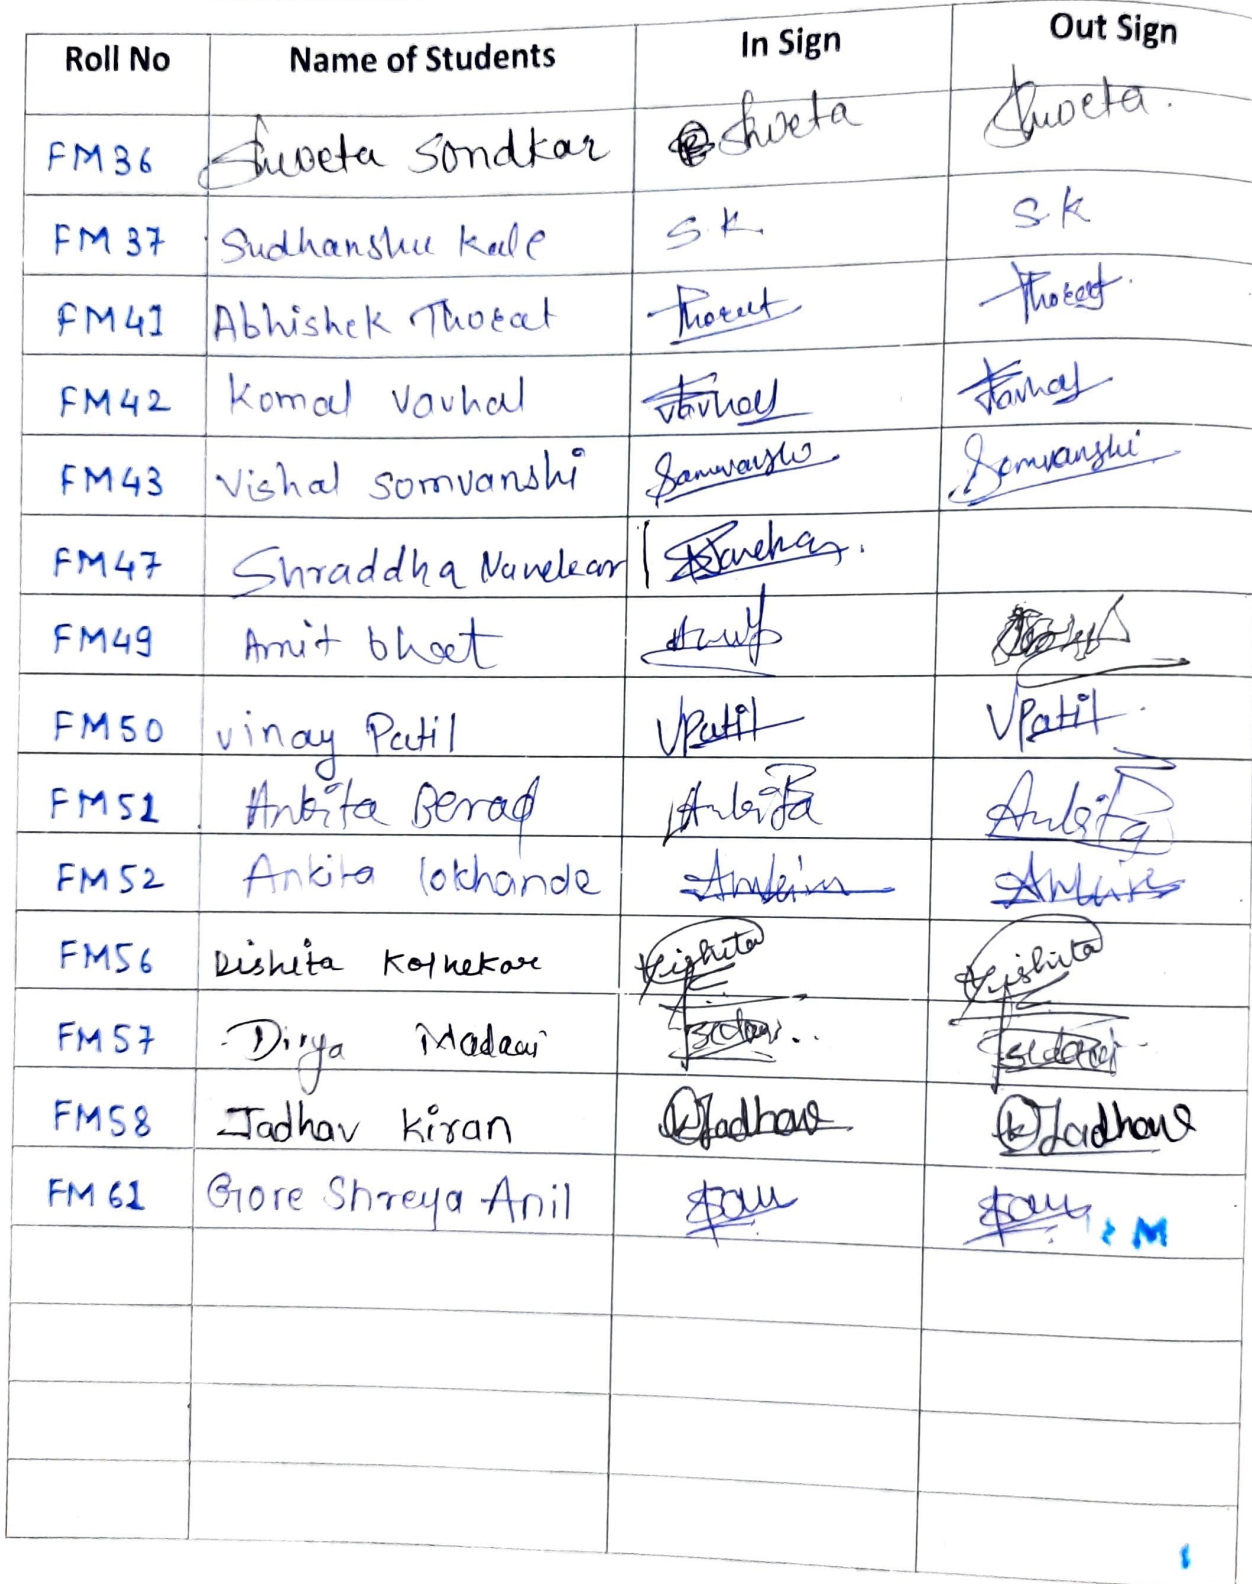 Roll No Name of Students In Sign Out Sign
FM36 Shweta Sondkar Shweta Shweta.
FM37 Sudhanshu Kale S.K. S K
FM41 Abhishek Thorat Thorat Thorat
FM42 Komal Vavhal Vavhal Vavhal
FM43 Vishal Somvanshi Somvanshi Somvanshi
FM47 Shraddha Navelkar
FM49 Amit bhoet
FM50 vinay Patil VPatil VPatil
FM51 Ankita Berad Ankita Ankita
FM52 Ankita lokhande
FM56 Rishita Kolhekar Rishita Rishita
FM57 Divya Madavi
FM58 Jadhav Kiran K Jadhav K Jadhav
FM61 Gore Shreya Anil
M